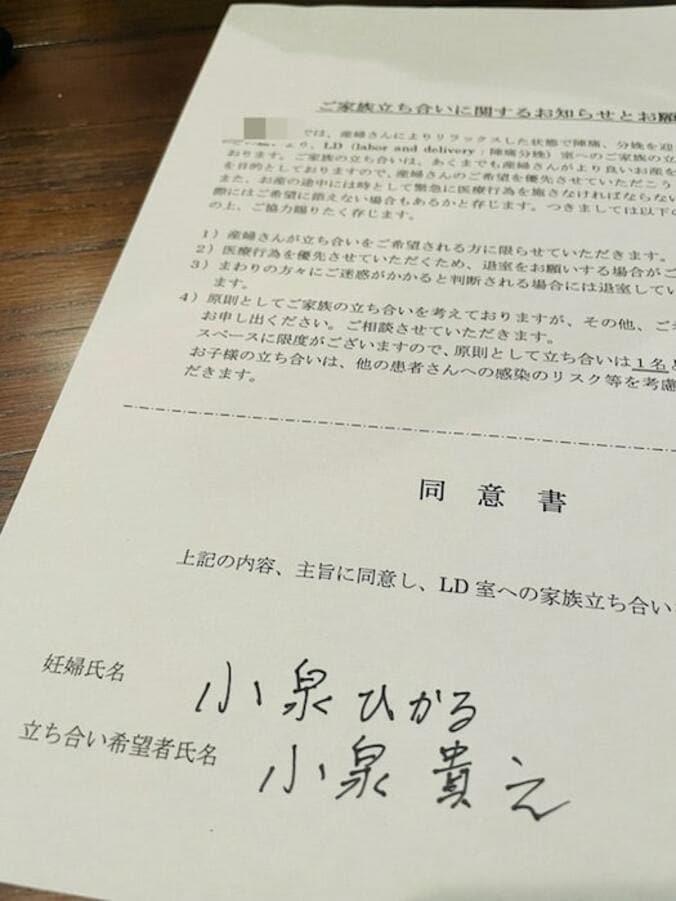 ご家族立ち合いに関するお知らせとお願
では、産婦さんによりリラックスした状態で陣痛、分娩を迎
より、LD (labor and delivery：陣痛分娩) 室へのご家族の立
おります。ご家族の立ち合いは、あくまでも産婦さんがより良いお産を
を目的としておりますので、産婦さんのご希望を優先させていただこう
また、お産の途中には時として緊急に医療行為を施さなければならない
際にはご希望に添えない場合もあるかと存じます。つきましては以下の
の上、ご協力賜りたく存じます。
1）産婦さんが立ち合いをご希望される方に限らせていただきます。
2）医療行為を優先させていただくため、退室をお願いする場合がご
3）まわりの方々にご迷惑がかかると判断される場合には退室してい
ます。
4）原則としてご家族の立ち合いを考えておりますが、その他、ご
お申し出ください。ご相談させていただきます。
スペースに限度がございますので、原則として立ち合いは1名と
お子様の立ち合いは、他の患者さんへの感染のリスク等を考慮
だきます。
同意書
上記の内容、主旨に同意し、LD 室への家族立ち合い
妊婦氏名 小泉ひかる
立ち合い希望者氏名 小泉 貴え